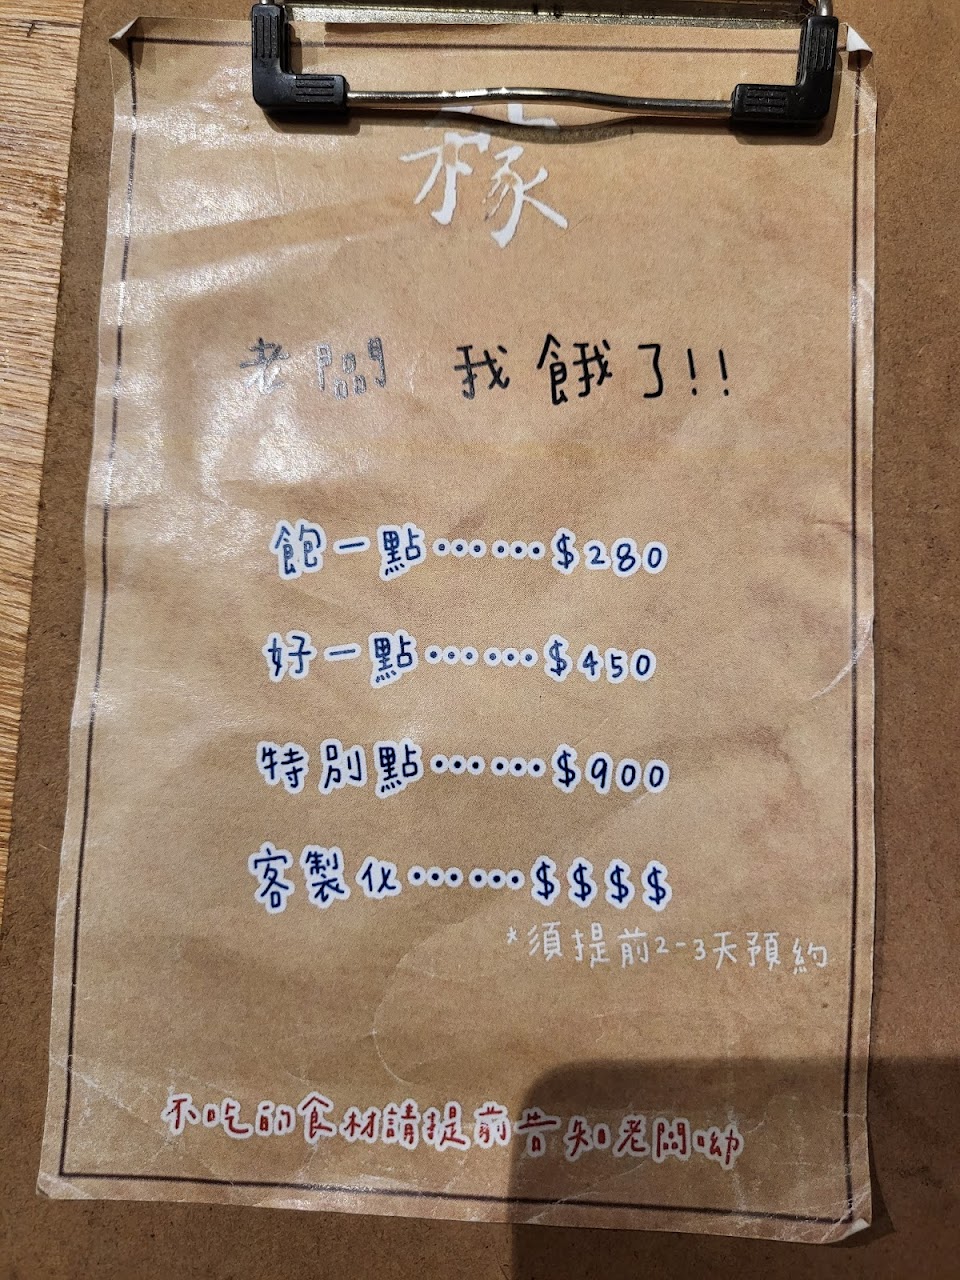 稼
老闆 我餓了!!
飽一點⋯⋯$280
好一點⋯⋯$450
特別點⋯⋯$900
客製化⋯⋯$$$$
*須提前2-3天預約
不吃的食材請提前告知老闆呦